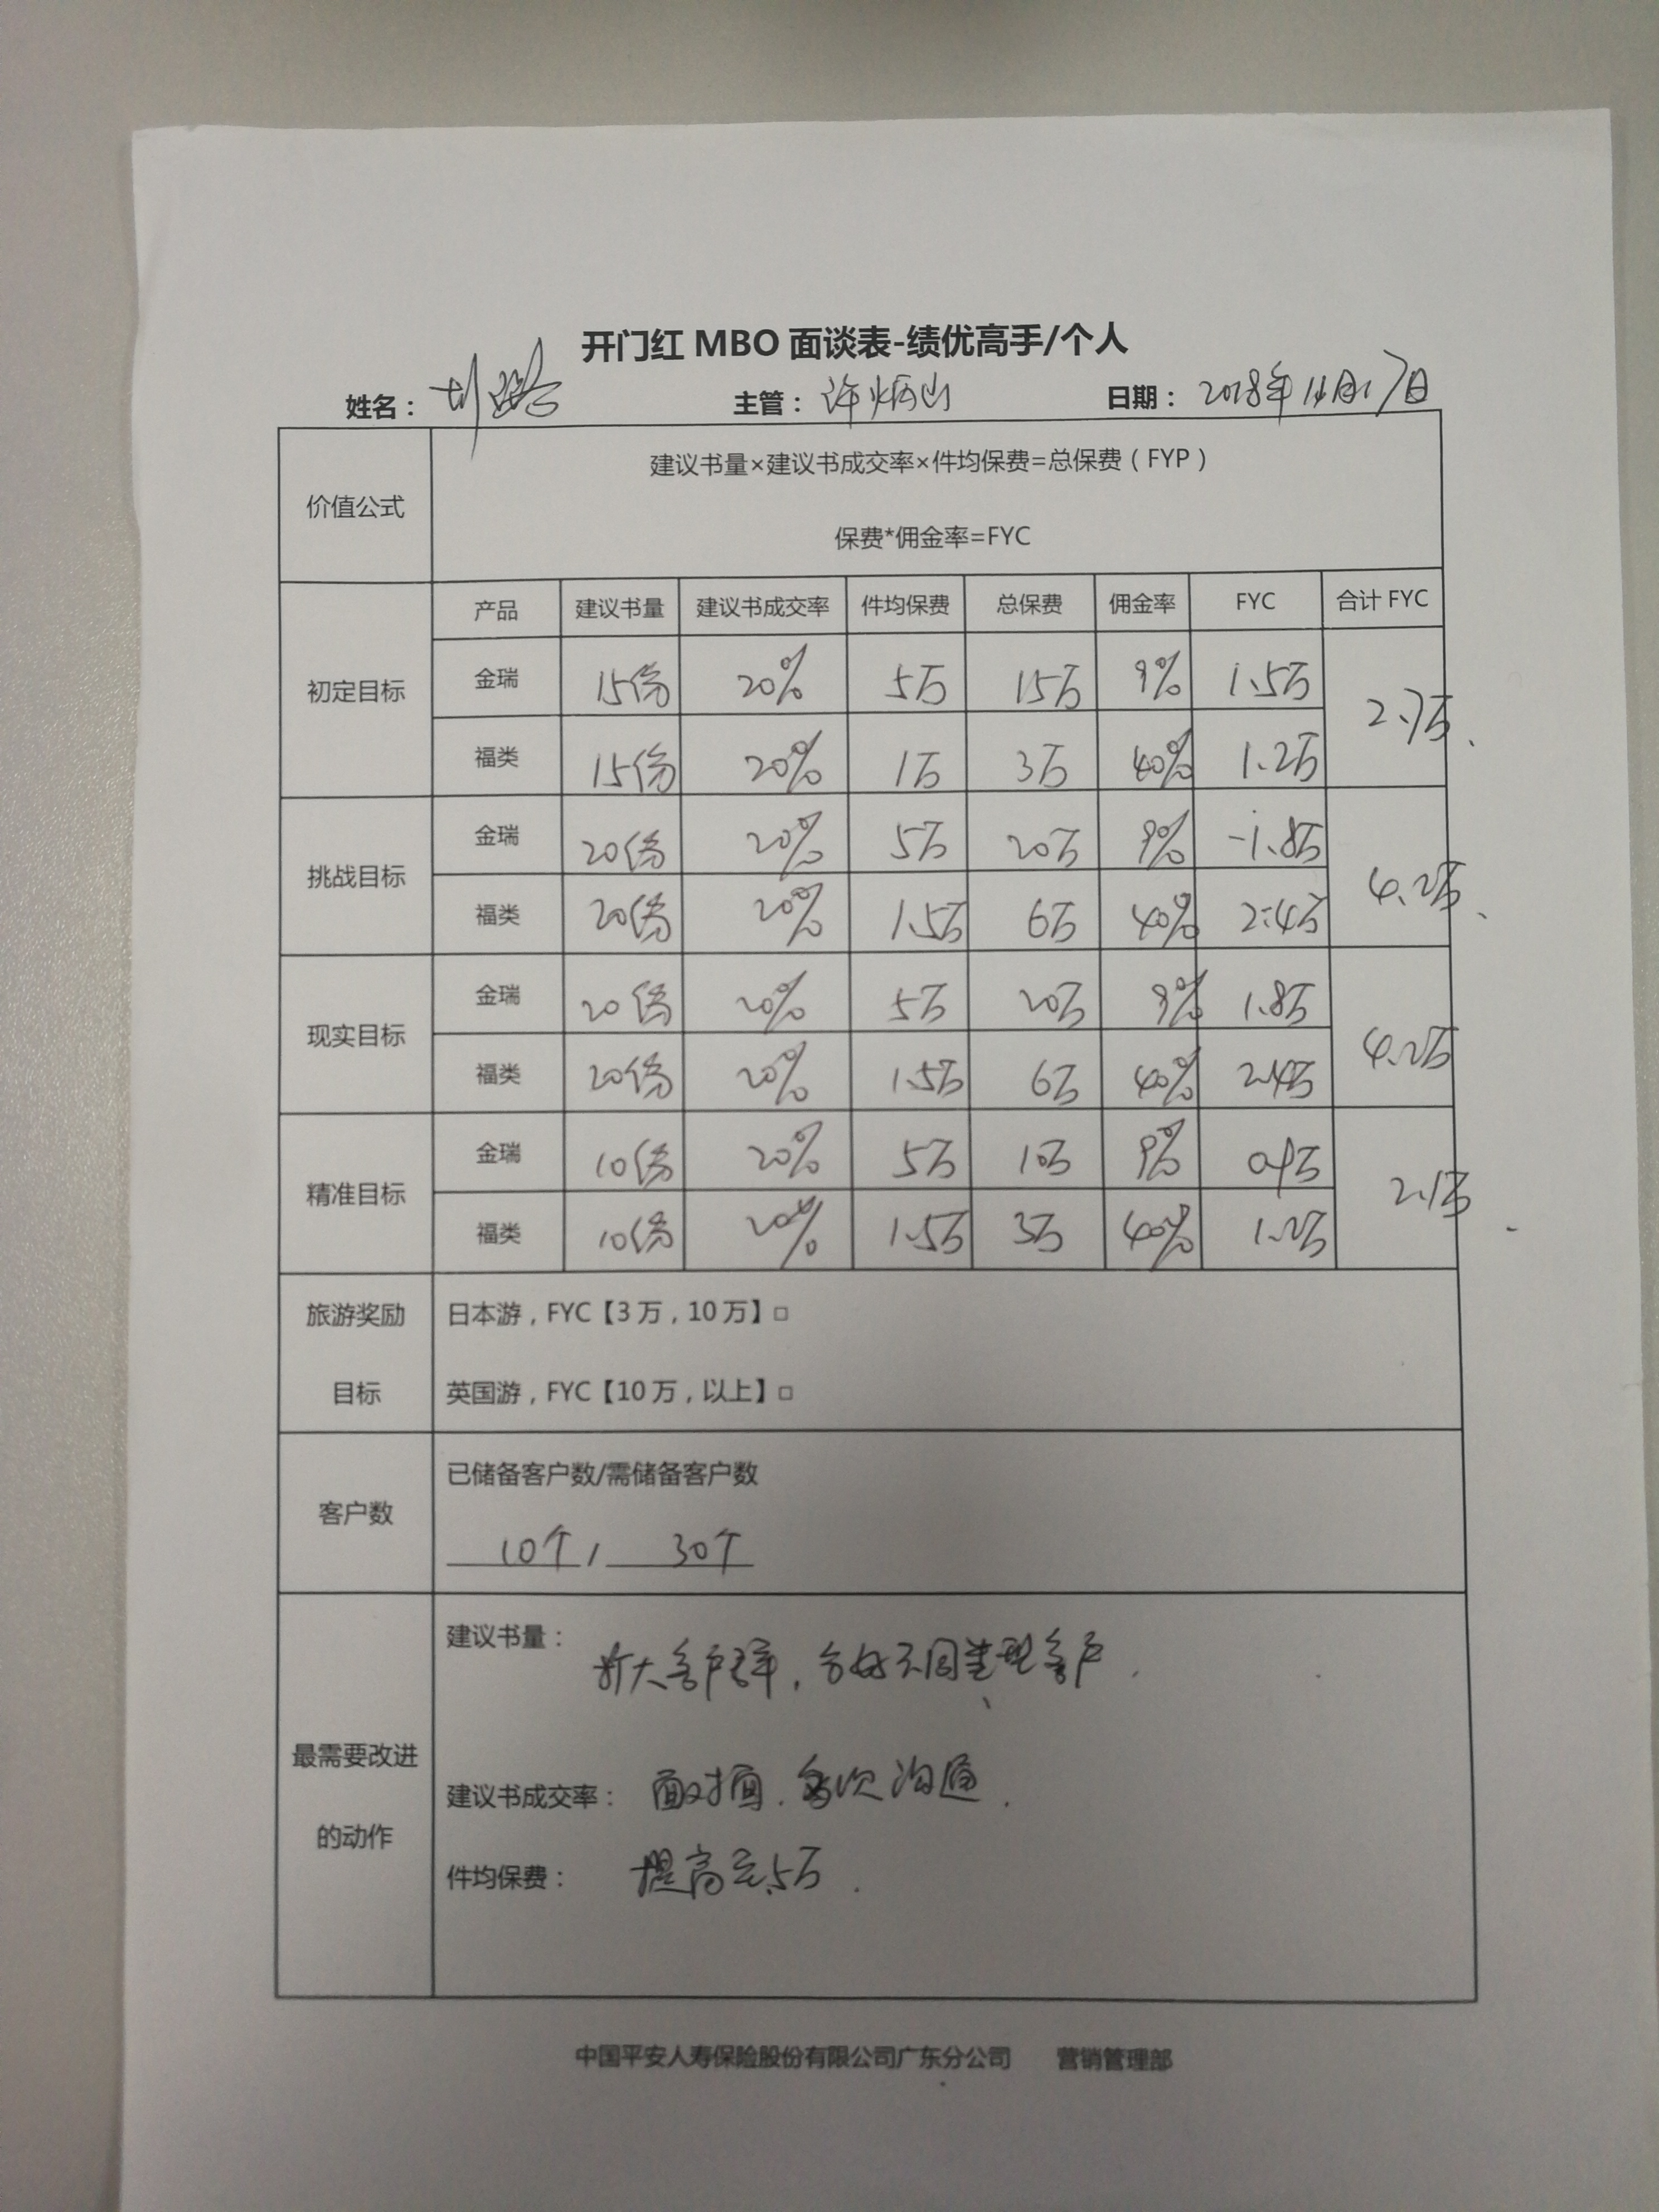 开门红 MBO 面谈表-绩优高手/个人
姓名： 主管：许炳山 日期：2018年11月17日
价值公式 建议书量×建议书成交率×件均保费=总保费（FYP）
保费*佣金率=FYC
产品 建议书量 建议书成交率 件均保费 总保费 佣金率 FYC 合计 FYC
初定目标 金瑞 15份 20% 5万 15万 9% 1.5万 2.7万
福类 15份 20% 1万 3万 40% 1.2万
挑战目标 金瑞 20份 20% 5万 20万 9% 1.8万 4.2万
福类 20份 20% 1.5万 6万 40% 2.4万
现实目标 金瑞 20份 20% 5万 20万 9% 1.8万 4.2万
福类 20份 20% 1.5万 6万 40% 2.4万
精准目标 金瑞 10份 20% 5万 10万 9% 0.9万 2.1万
福类 10份 20% 1.5万 3万 40% 1.2万
旅游奖励 日本游，FYC【3 万，10 万】□
目标 英国游，FYC【10 万，以上】□
客户数 已储备客户数/需储备客户数
10个/ 30个
最需要改进
的动作
建议书量： 扩大客户群，分好不同类型客户.
建议书成交率： 面对面.多次沟通.
件均保费： 提高至5万.
中国平安人寿保险股份有限公司广东分公司 营销管理部